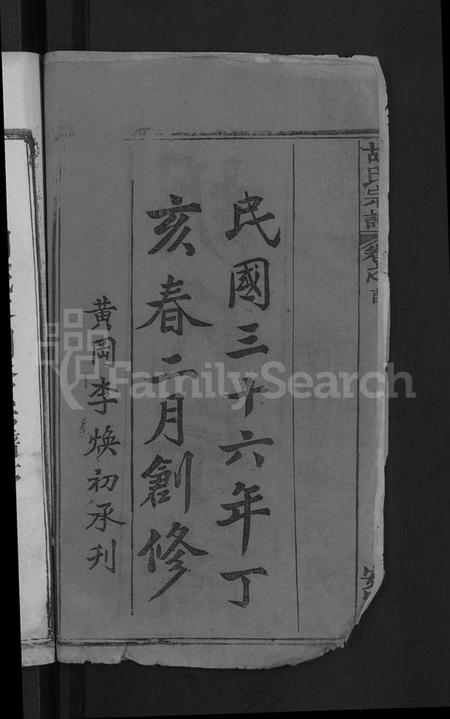 胡氏宗譜 卷之首
民國三十六年丁
亥春二月創修
黃岡李煥初承刊
FamilySearch